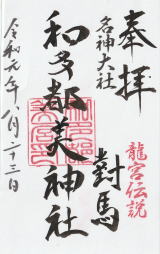 奉拝
名神大社
對馬
龍宮伝説
和多都美神社
令和七年八月二十三日